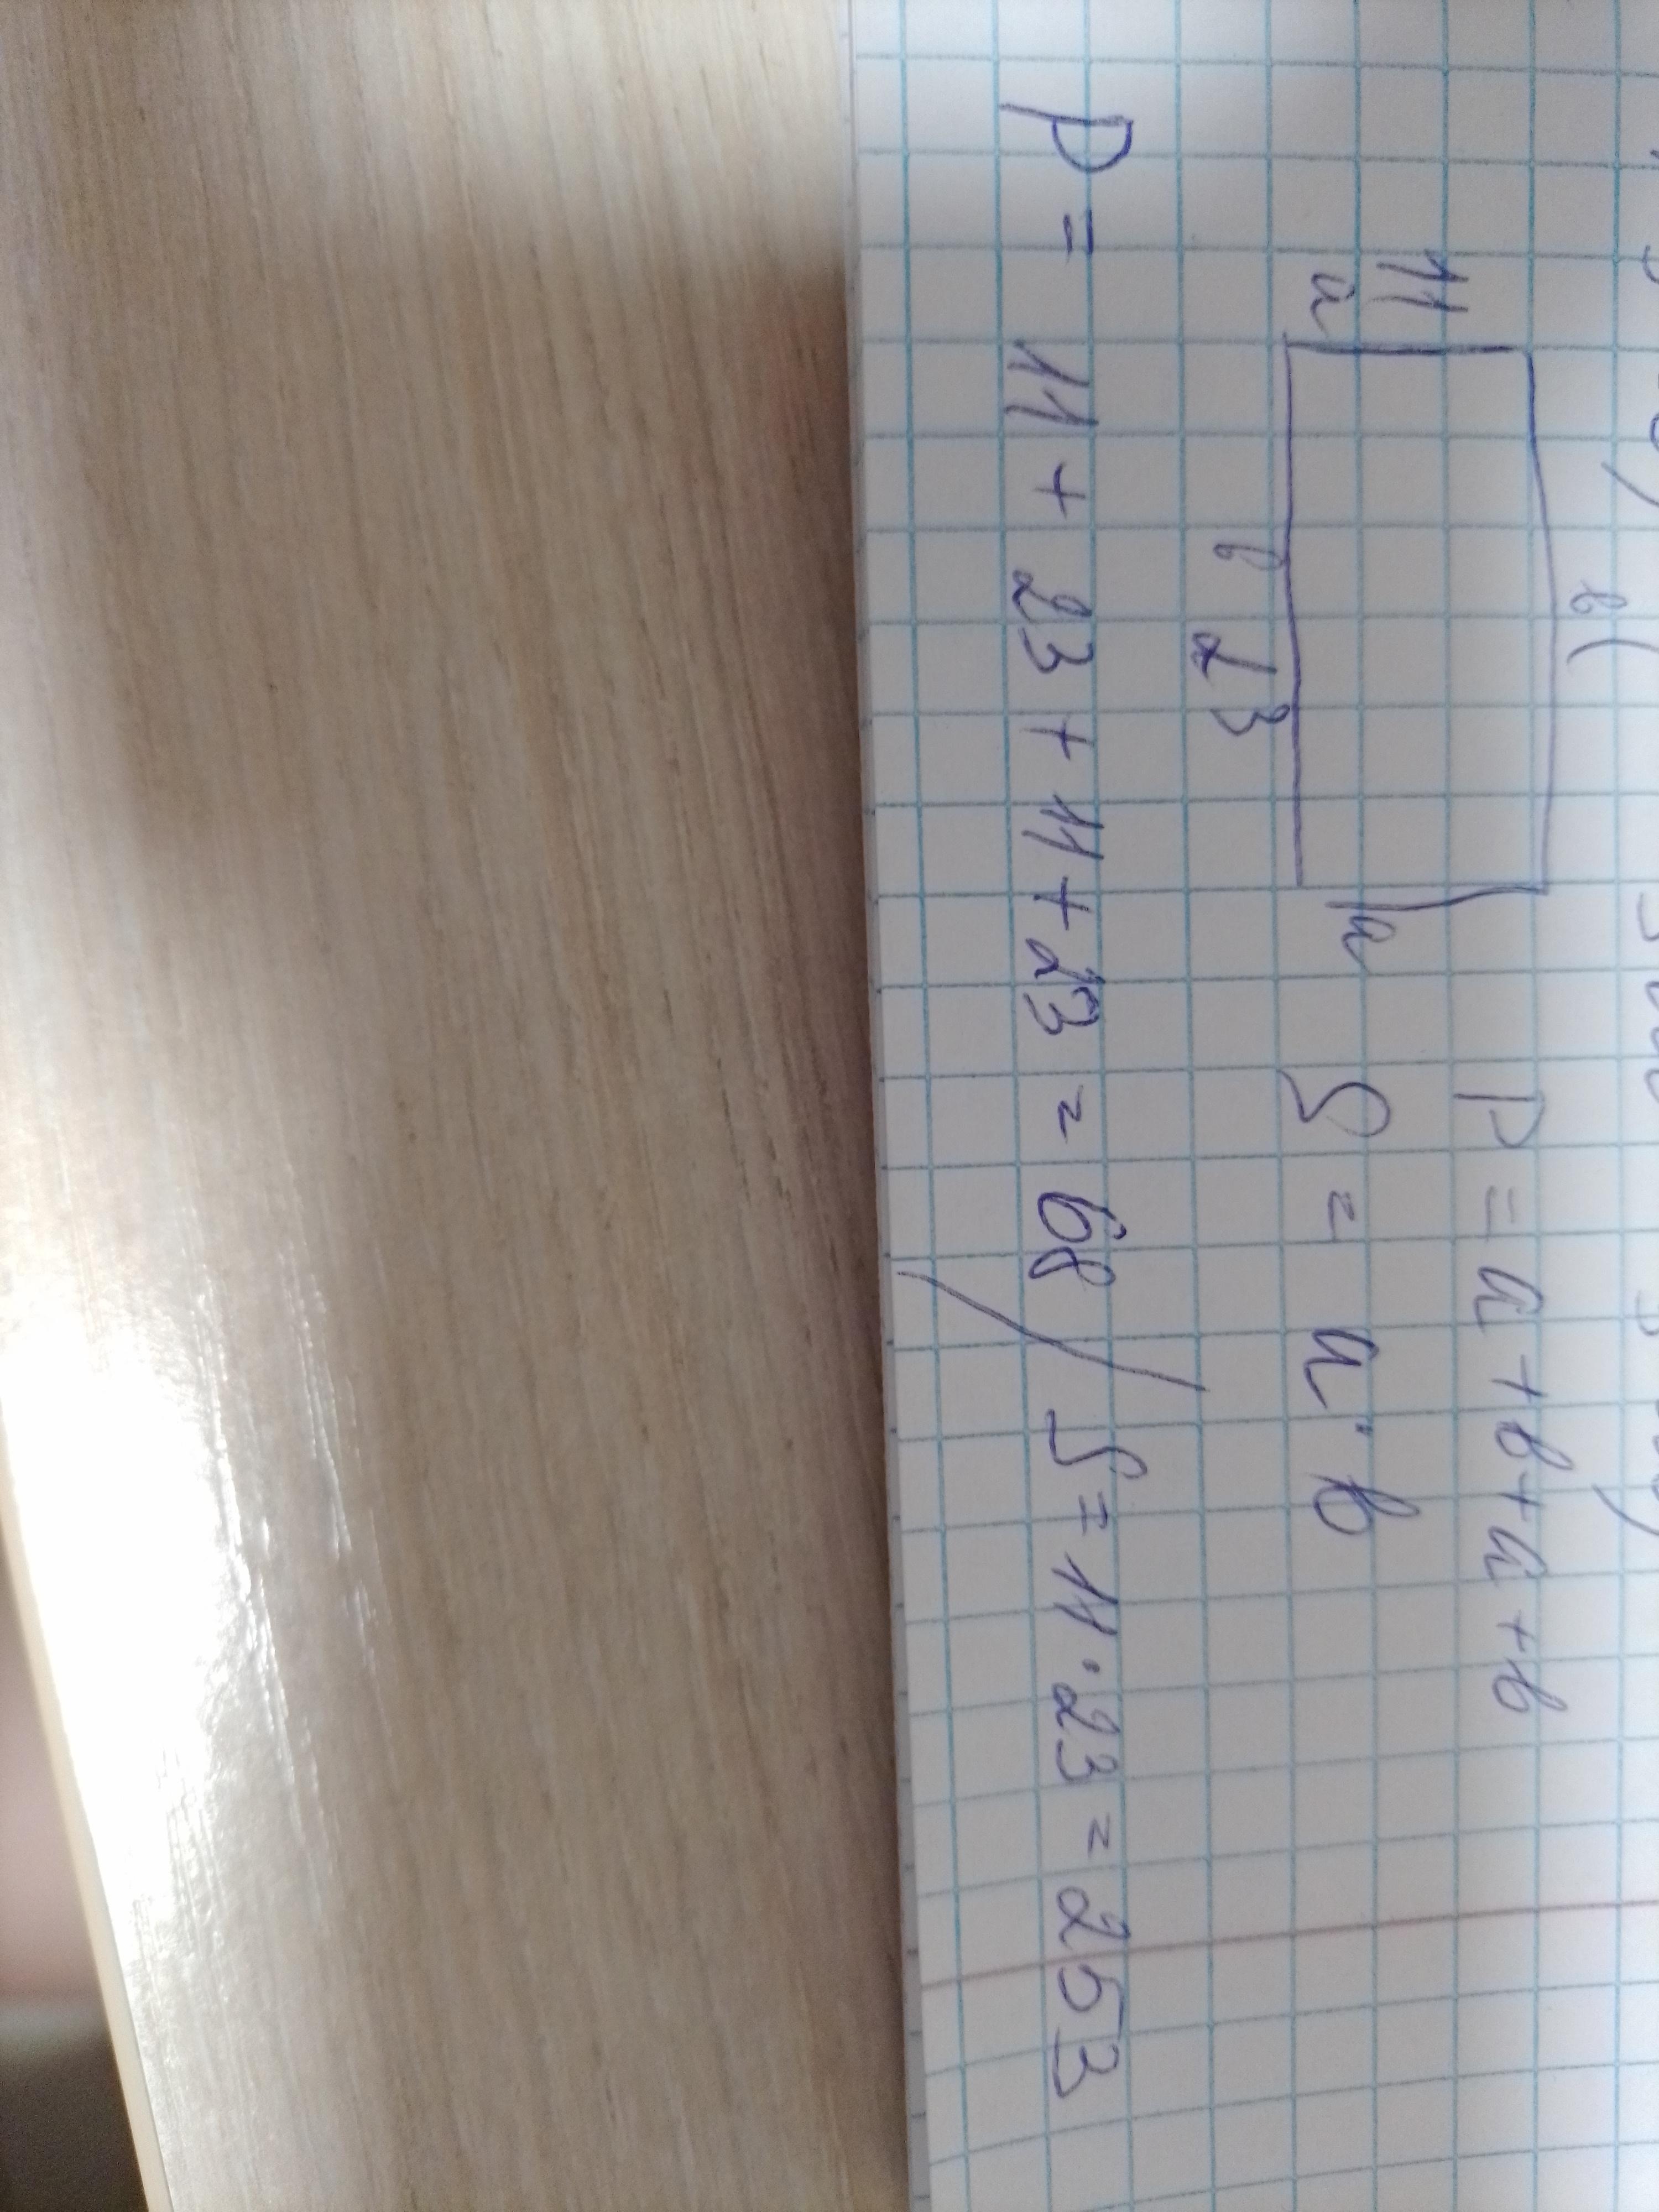 в
11
a a
P = a + в + a + в
S = a · в
в 23
P = 11 + 23 + 11 + 23 = 68 / S = 11 · 23 = 253